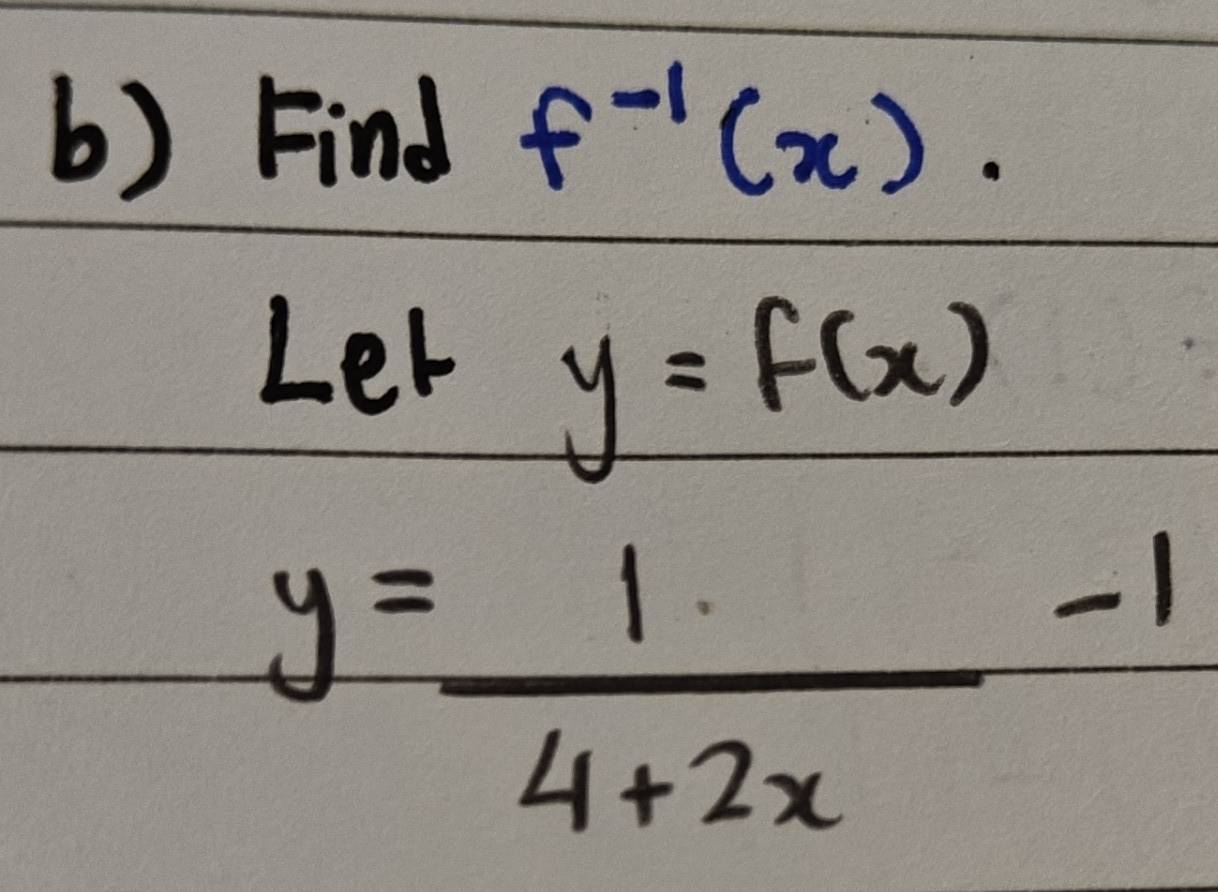 b) Find f⁻¹(x).
Let y = f(x)
y = 1 -1
4+2x